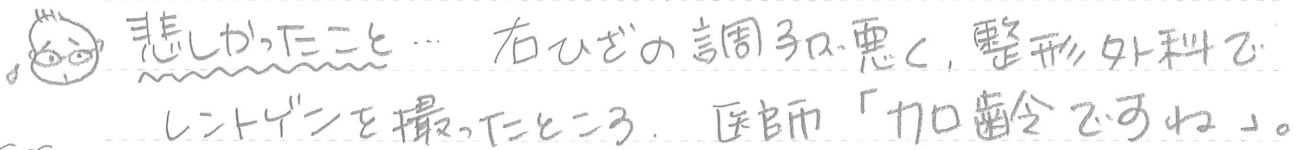 悲しかったこと… 右ひざの調子が悪く、整形外科で
レントゲンを撮ったところ、医師「加齢ですね」。